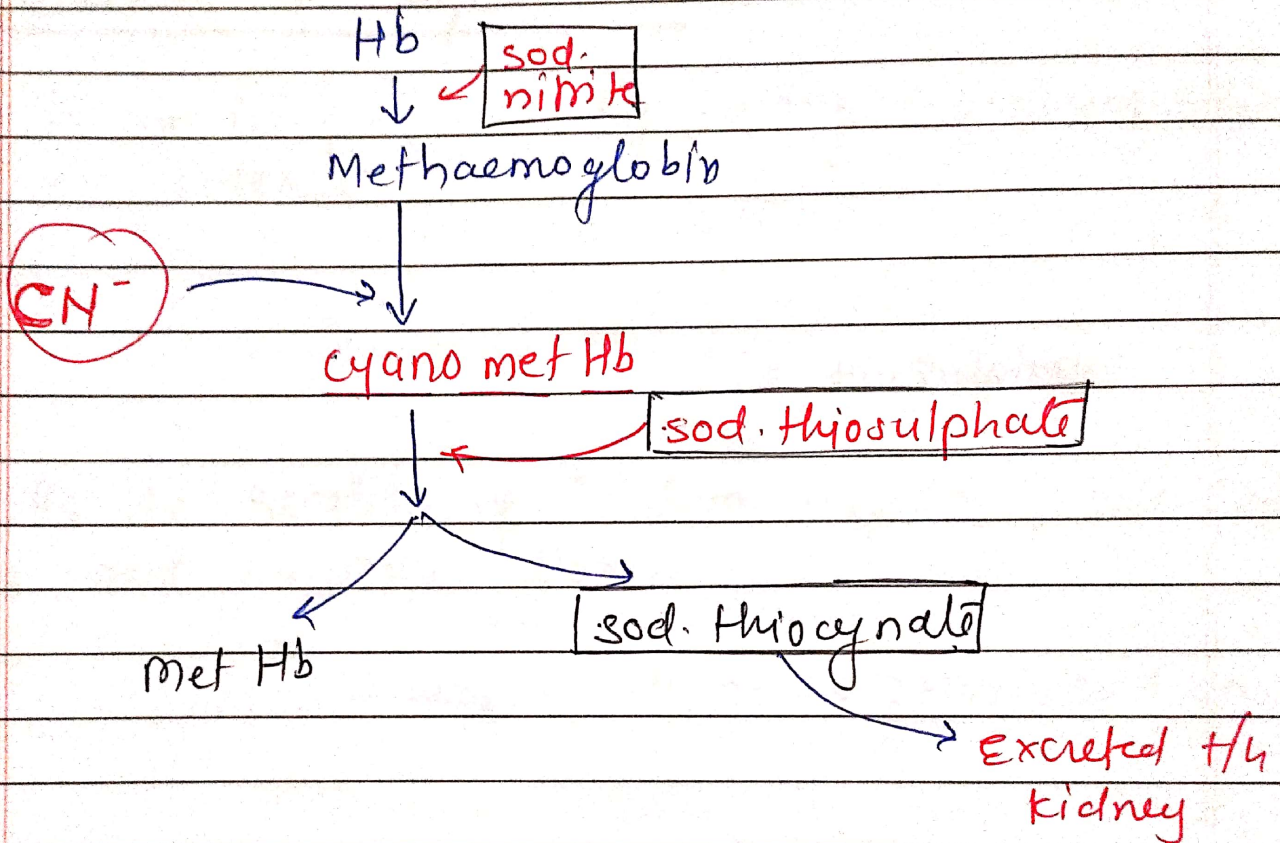 Hb
sod.
nitrite
Methaemoglobin
CN⁻
cyano met Hb
sod. thiosulphate
sod. thiocynate
Met Hb
Excreted t/h
kidney